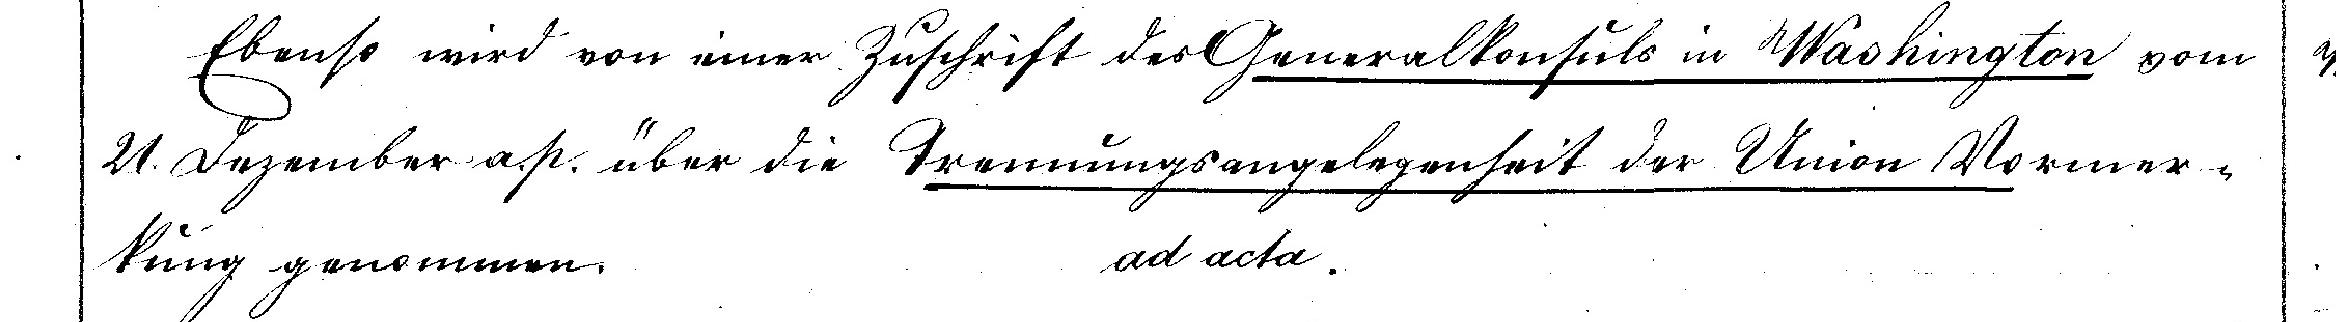 Ebenso wird von einer Zuschrift des Generalkonsuls in Washington vom
21. Dezember a. p. über die Trennungsangelegenheit der Union Vormer-
kung genommen. ad acta.